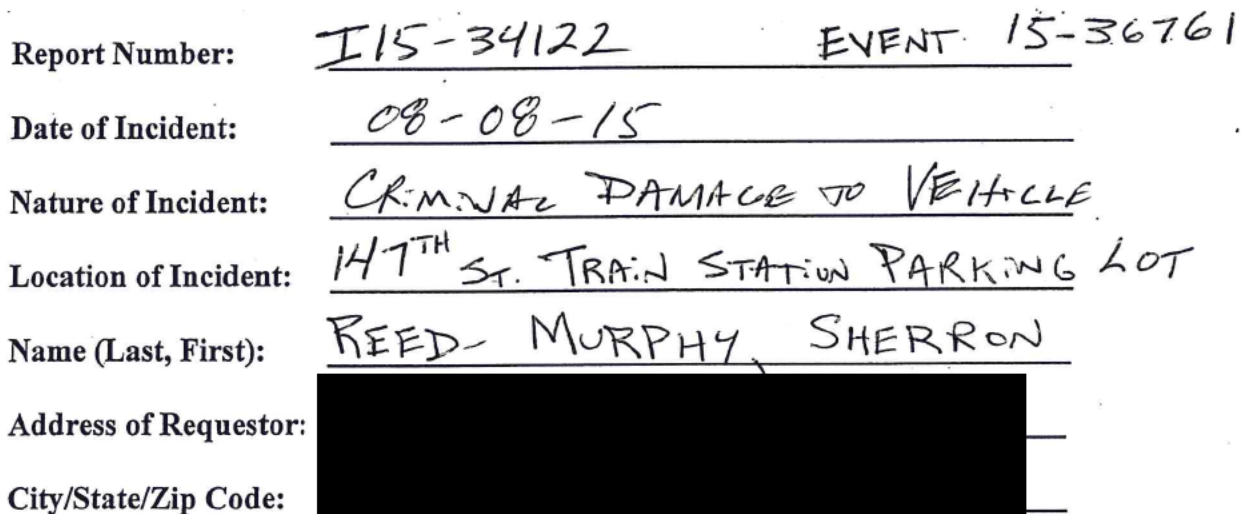 Report Number: I15-34122 EVENT 15-36761
Date of Incident: 08-08-15
Nature of Incident: CRIMINAL DAMAGE TO VEHICLE
Location of Incident: 147TH ST. TRAIN STATION PARKING LOT
Name (Last, First): REED-MURPHY, SHERRON
Address of Requestor:
City/State/Zip Code: